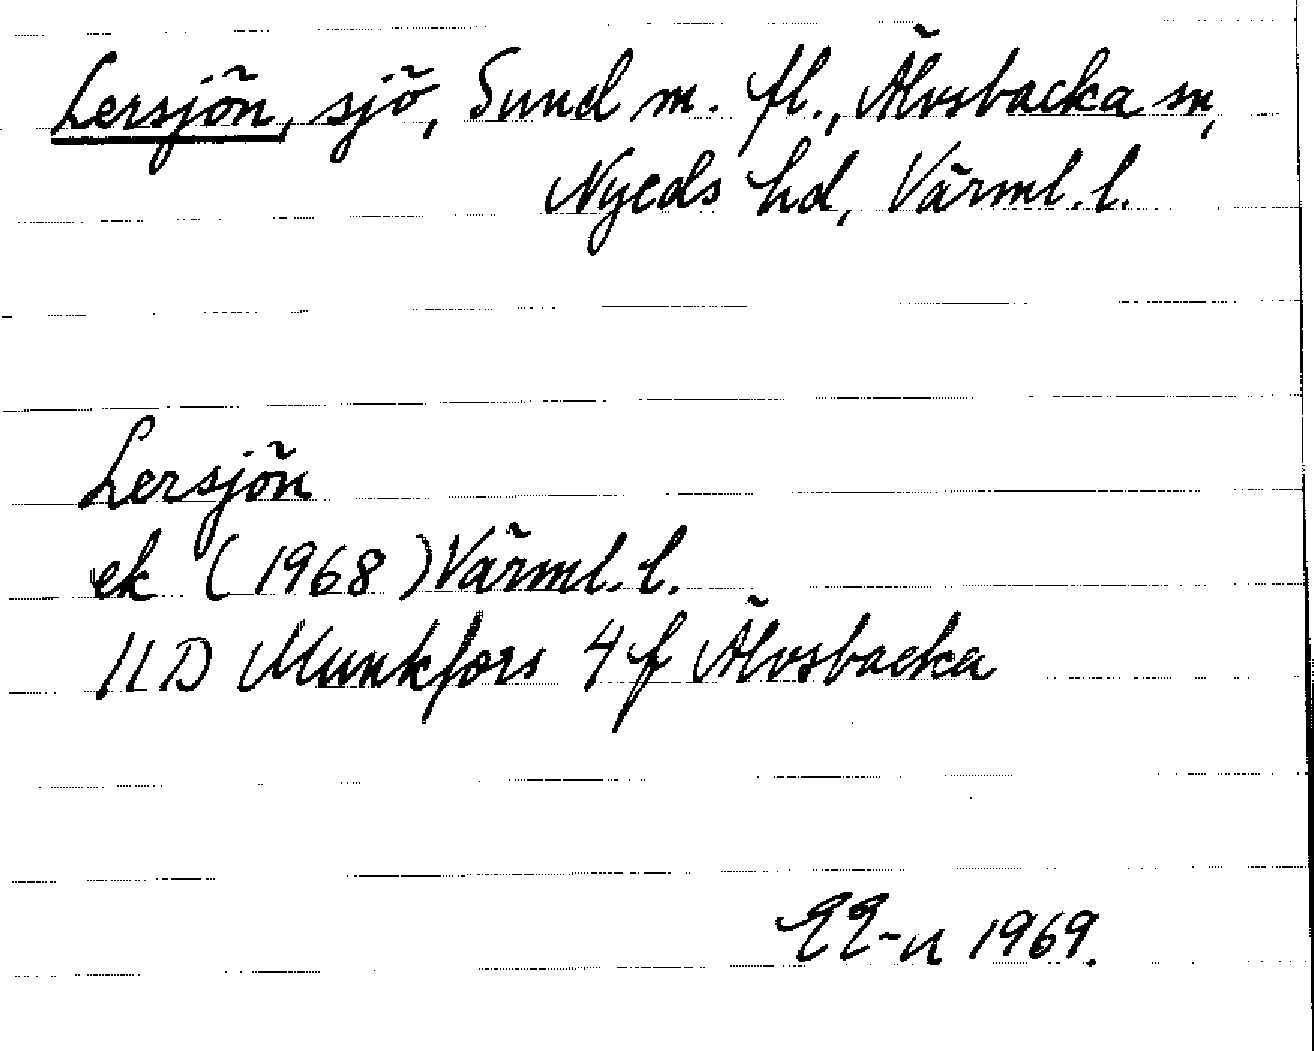 Lersjön, sjö, Sund m. fl., Älvsbacka sn,
Nyeds hd, Värml. l.
Lersjön
ek (1968) Värml. l.
11D Munkfors 4f Älvsbacka
EE-n 1969.